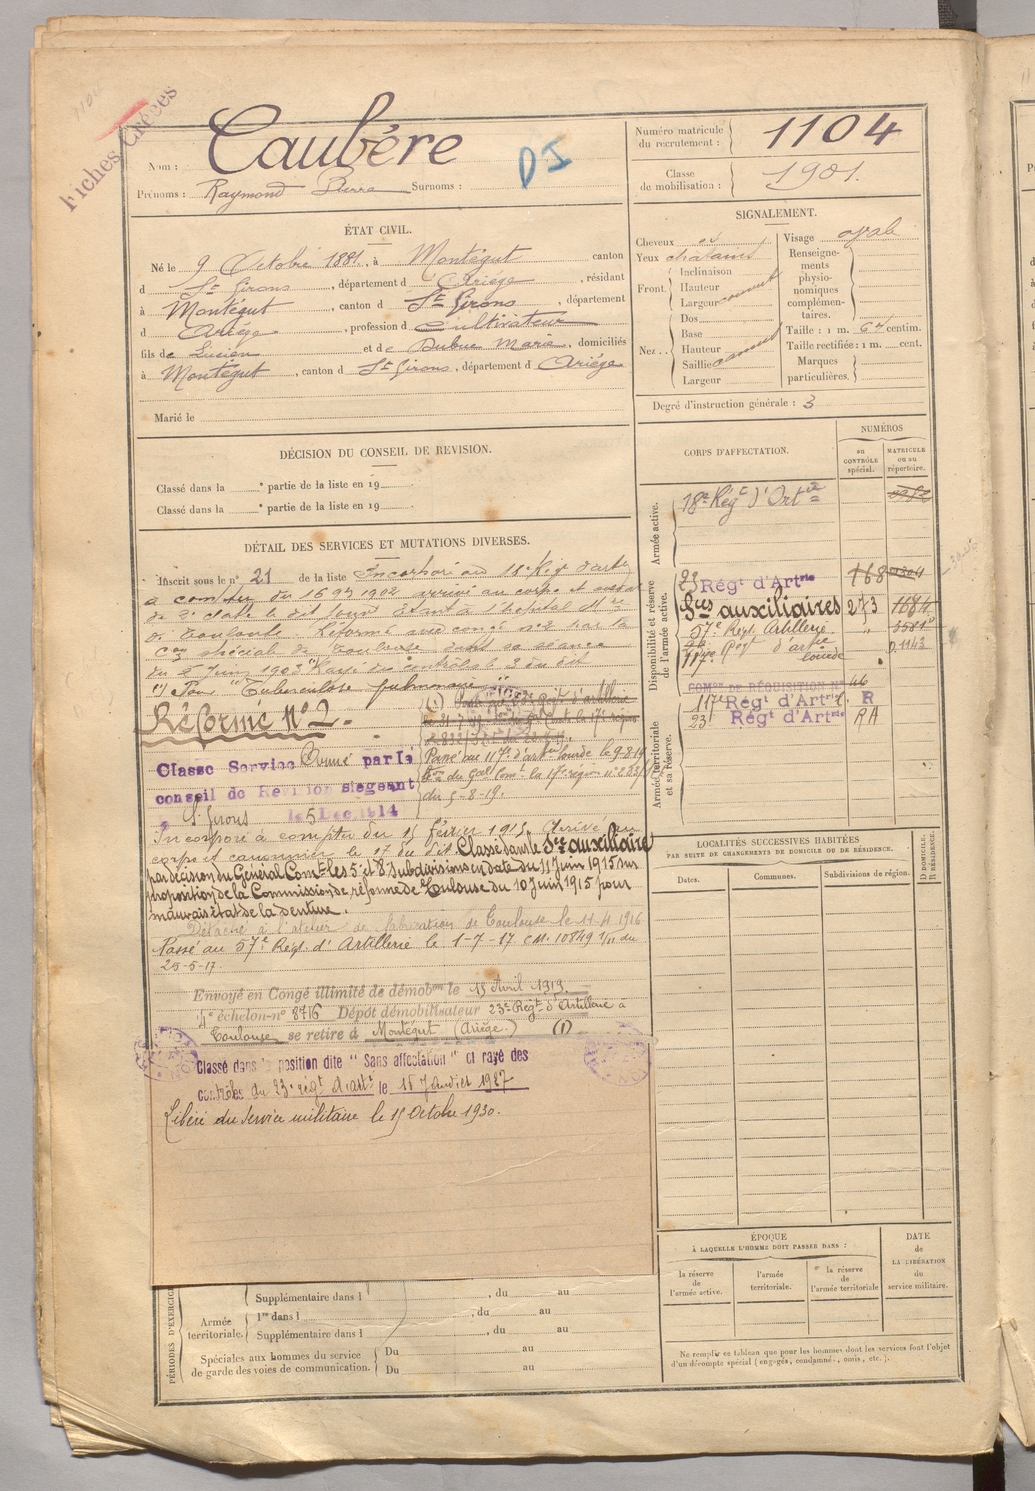 Fiches Créées
Nom : Caubère
D I
Prénoms : Raymond Pierre Surnoms :
Numéro matricule
du recrutement : 1104
Classe
de mobilisation : 1901.
ÉTAT CIVIL.
Né le 9 Octobre 1881, à Montégut canton
d St Girons, département d Ariége, résidant
à Montégut, canton d St Girons, département
d Ariége, profession d Cultivateur
fils de Lucien et de Dubuc Marie, domiciliés
à Montégut, canton d St Girons, département d Ariége
Marié le
SIGNALEMENT.
Cheveux et
Yeux chatains
Front. Inclinaison
Hauteur
Largeur
Nez. . Dos
Base
Hauteur
Saillie
Largeur
Visage ovale
Renseigne-
ments
physio-
nomiques
complémen-
taires.
Taille : 1 m. centim.
Taille rectifiée : 1 m. cent.
Marques
particulières.
Degré d'instruction générale : 3
DÉCISION DU CONSEIL DE REVISION.
Classé dans la e partie de la liste en 19
Classé dans la e partie de la liste en 19
CORPS D'AFFECTATION.
NUMÉROS
au
CONTRÔLE
spécial.
MATRICULE
ou au
répertoire.
Armée active.
18e Régt d'Artie
Disponibilité et réserve
de l'armée active.
23 Régt d'Artrie 168
Sces auxiliaires 273 1684
57e Régt. Artillerie "
117e Régt d'artie lourde
COMon DE RÉQUISITION No 46
Armée territoriale
et sa réserve.
117e Régt d'Artrie l. R
23e Régt d'Artrie RA
DÉTAIL DES SERVICES ET MUTATIONS DIVERSES.
Inscrit sous le no 21 de la liste Incorporé au Régt d'artie
à compter du 16 9bre 1902 arrivé au corps et
de 2e classe le dit jour. Etant à l'hôpital
de Toulouse. Réformé avec congé no 2 par la
Con spéciale de Toulouse dans sa séance
du 2 Juin 1903 Rayé des contrôles le 3 du dit
(1) Pour "Tuberculose pulmonaire"
Réformé No 2.
Classe Service Armé par le
conseil de Révision siegeant
à St Girons le 5 Dec. 1914
Passé au 117e d'artie lourde le 9-8-19
don du Gal Comt la 17e région
du 5-8-19.
Incorporé à compter du 15 février 1915. Arrivé au
corps et canonnier le 17 du dit. Classé dans le Sce auxiliaire
par décision du Général Comt les 5e et 8e Subdivisions en date du 11 Juin 1915 sur
proposition de la Commission de réforme de Toulouse du 10 Juin 1915 pour
mauvais état de la denture.
Détaché à l'atelier de fabrication de Toulouse le 11.4.1916
Passé au 57e Régt. d'Artillerie le 1-7-17 CM. 10849 1/11 du
25-5-17.
Envoyé en Congé illimité de démobon le 15 Avril 1919.
4e échelon-no 8716 Dépôt démobilisateur 23e Régt d'Artillerie à
Toulouse se retire à Montégut (Ariège.) (1)
Classé dans la position dite " Sans affectation " et rayé des
contrôles du 23e régt d'artie le 15 Janvier 1927
Libéré du service militaire le 15 Octobre 1930.
LOCALITÉS SUCCESSIVES HABITÉES
PAR SUITE DE CHANGEMENTS DE DOMICILE OU DE RÉSIDENCE.
Dates. Communes. Subdivisions de région.
D DOMICILE.
R RÉSIDENCE.
PÉRIODES D'EXERCICE
Supplémentaire dans l , du au
Armée
territoriale.
1re dans l , du au
Supplémentaire dans l , du au
Spéciales aux hommes du service
de garde des voies de communication.
Du au
Du au
ÉPOQUE
À LAQUELLE L'HOMME DOIT PASSER DANS :
la réserve
de
l'armée active.
l'armée
territoriale.
la réserve
de
l'armée territoriale
DATE
de
LA LIBÉRATION
du
service militaire.
Ne remplir ce tableau que pour les hommes dont les services font l'objet
d'un décompte spécial (engagés, condamné, omis, etc.).